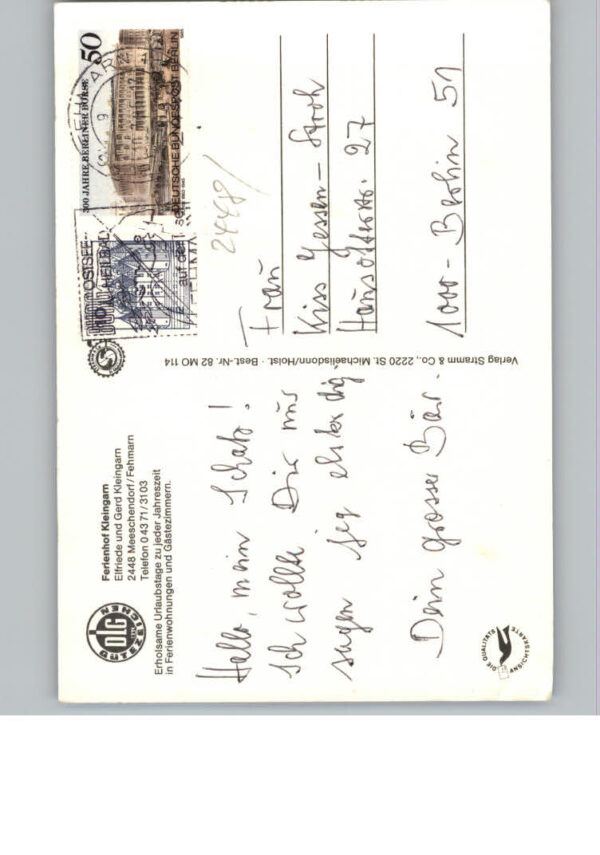 Ferienhof Kleingarn
Elfriede und Gerd Kleingarn
2448 Meeschendorf/Fehmarn
Telefon 0 43 71/3103
Erholsame Urlaubstage zu jeder Jahreszeit
in Ferienwohnungen und Gästezimmern.
DLG
GÜTEZEICHEN
Hallo, mein Schatz!
Ich wollte Dir nur
sagen
Dein grosser Bär.
DIE QUALITÄTS
ANSICHTSKARTE
Verlag Stramm & Co., 2220 St. Michaelisdonn/Holst. · Best.-Nr. 82 MO 114
OSTSEE-
HEILBAD
auf der
300 JAHRE BERLINER BÖRSE
50
DEUTSCHE BUNDESPOST BERLIN
2448/
Frau
Kiss Jessen-Stroh
27
1000 - Berlin 51